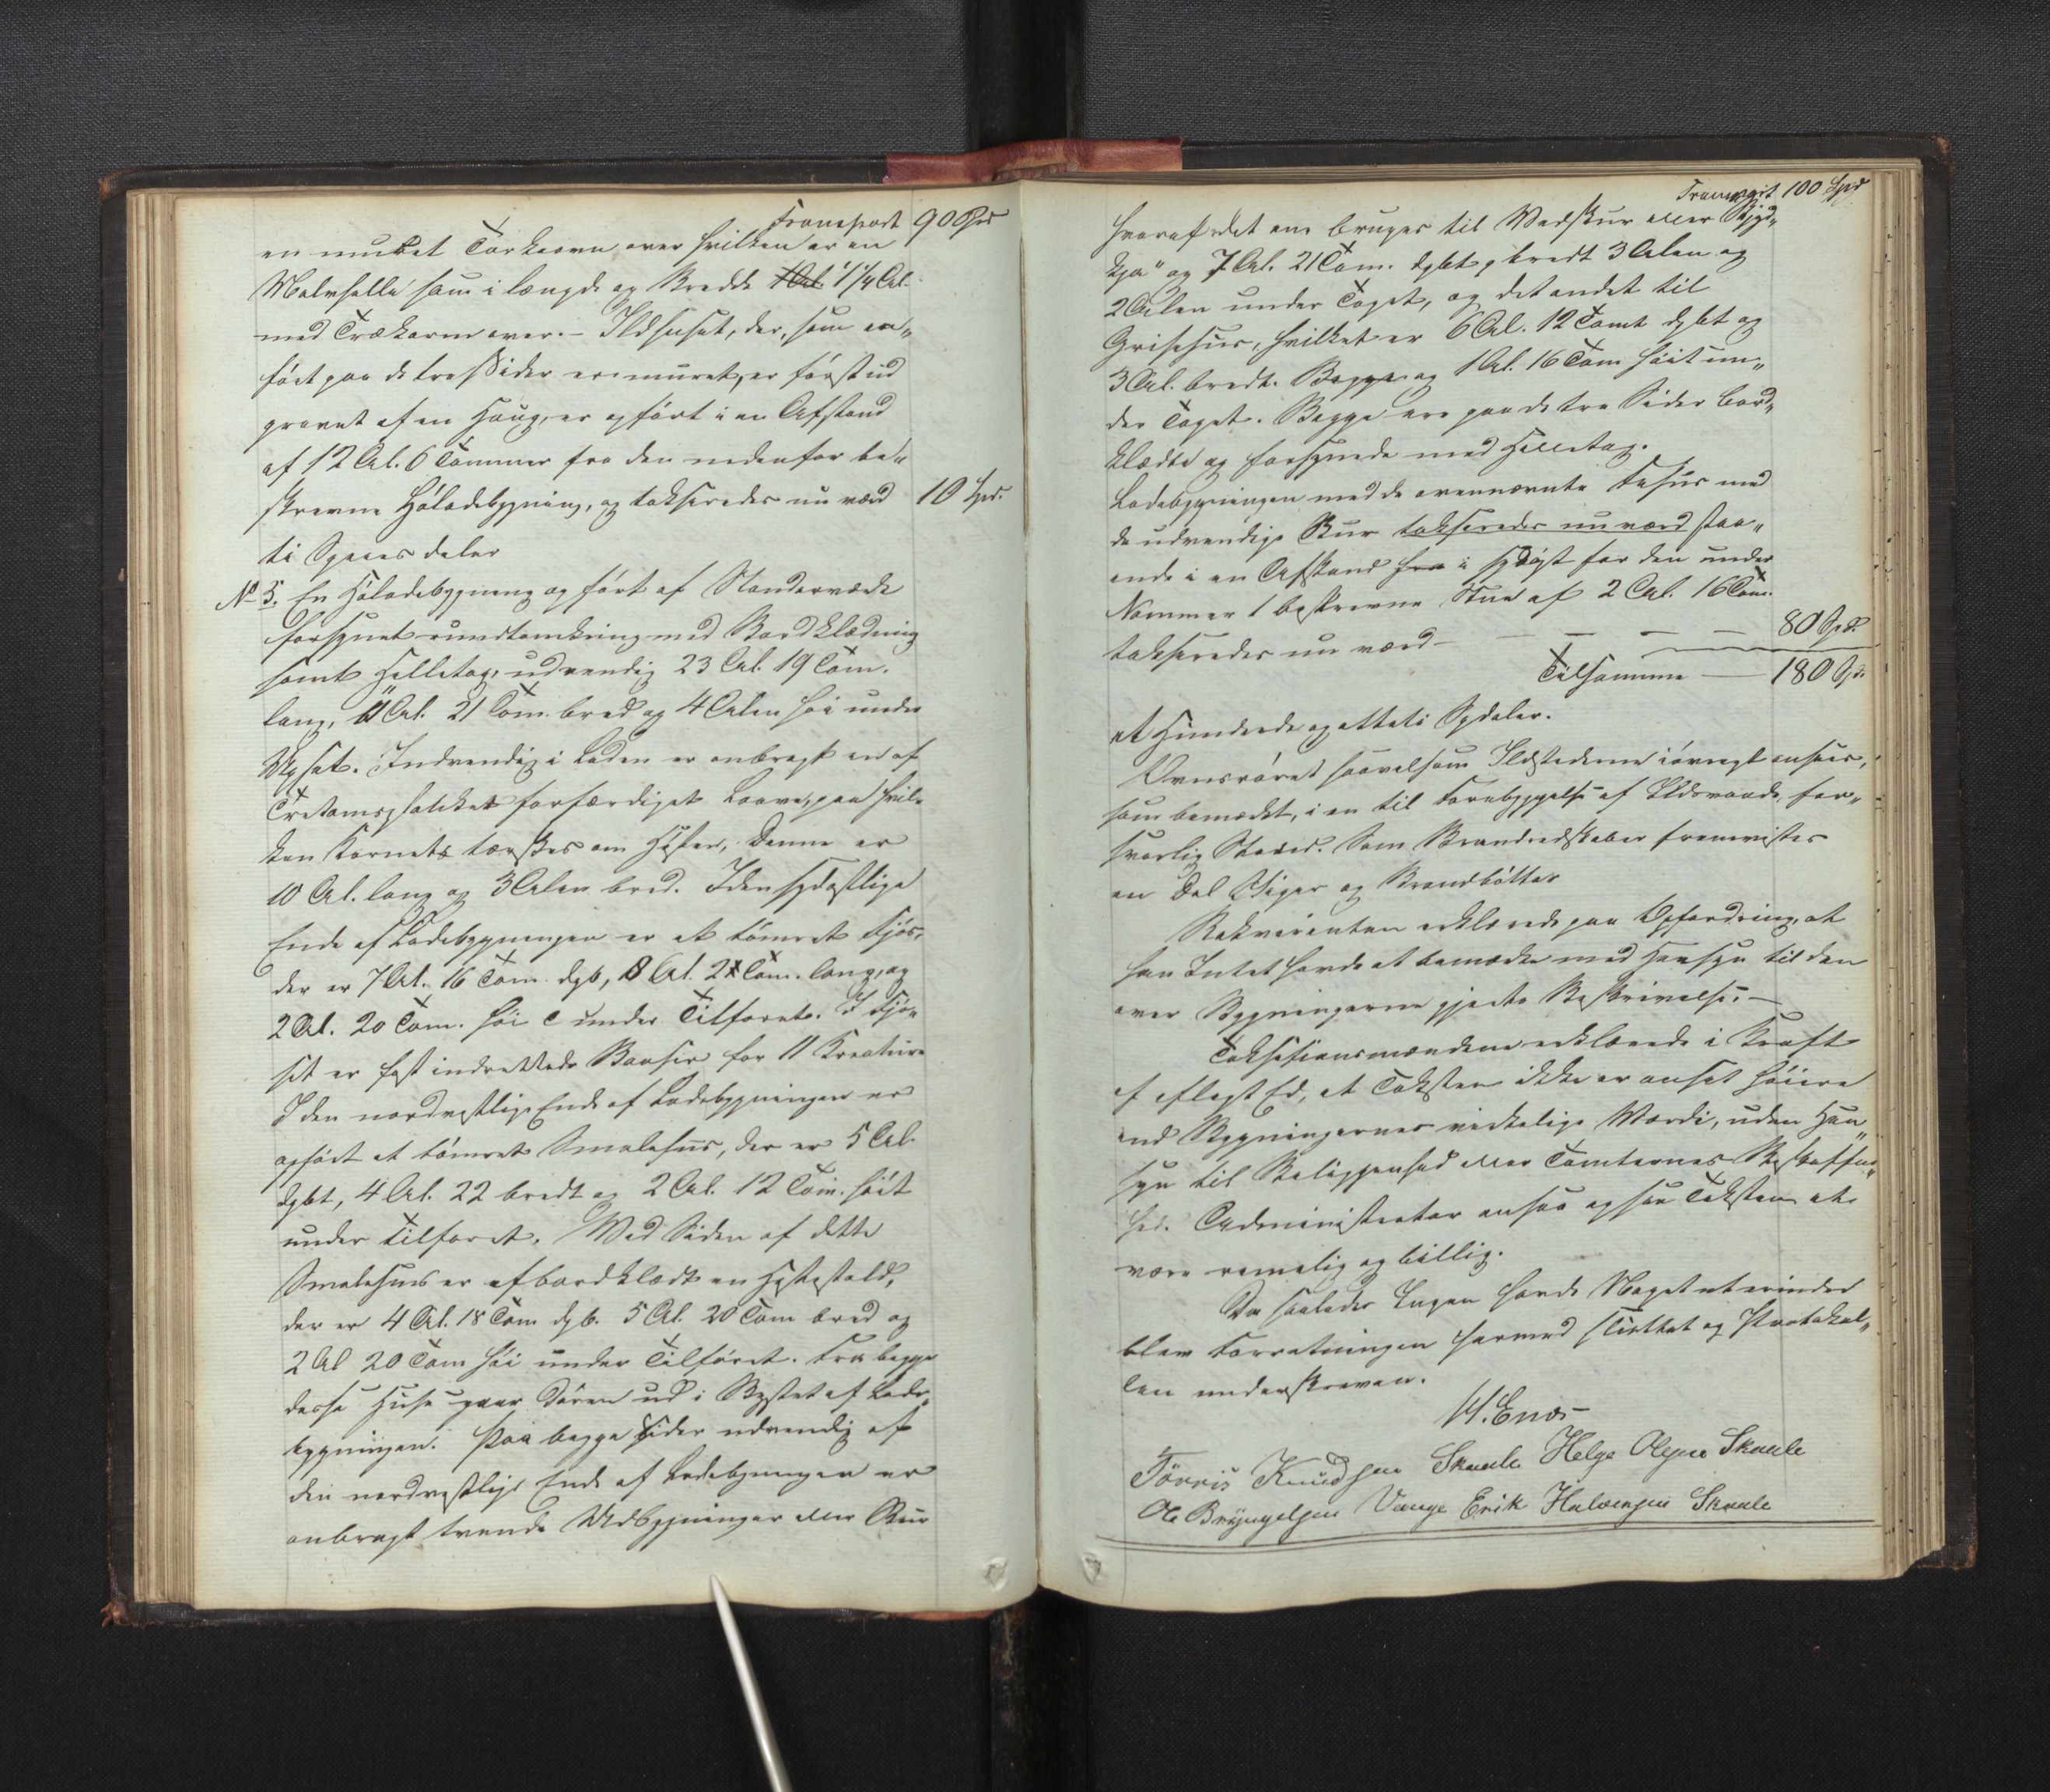 Transport 90 Spd
en muret Tørkeovn, over hvilken er en
Malmhelle som i længde og Bredde 1 1/4 Al.
med Trækarm over. – Ildhuset, der, som an„
ført paa de tre Sider er muret, er først ud
gravet af en Houg, er opført i en Afstand
af 12 Al. 6 Tommer fra den nedenfor be„
skrevne Høladebygning, og takseredes nu værd 10 Spd.
ti Species daler
No 5. En Høladebygning opført af Standerværk
forsynet rundtomkring med Bordklædning
samt Helletag, udvendig 23 Al. 19 Tom.
lang, 11 Al. 21 Tom. bred og 4 Alen høi under
Opsat. Indvendig i Laden er anbragt en af
Tretomsplanker forfærdiget Laave, paa hvil„
ken Kornet tærskes om Høsten, denne er
10 Al. lang og 3 Alen bred. I den sydøstlige
Ende af Ladebygningen er et tømret Fjøs,
der er 7 Al. 16 Tom. dyb, 8 Al. 21 Tom. lang, og
2 Al. 20 Tom. høi under Tilfaret. I Fjø„
set er fast indrettede Baaser for 11 Kreature
I den nordvestlige Ende af Ladebygningen er
opført et tømret Smalehus, der er 5 Al.
dybt, 4 Al. 22 bredt og 2 Al. 12 Tom. høit
under Tilfaret. Ved Siden af dette
Smalehus er af bordklædt en Hestestald,
der er 4 Al. 18 Tom dyb. 5 Al. 20 Tom bred og
2 Al 20 Tom høi under Tilfaret. Fra begge
desse Huse gaar Døren ud i Bystet af Lade„
bygningen. Paa begge Sider udvendig af
den nordvestlige Ende af Ladebygningen er
anbragt tvende Udbygninger eller Skur
Transport 100 Spd
hvoraf det ene bruges til Vedskur eller
og 7 Al. 21 Tom. dybt, bredt 3 Alen og
2 Alen under Taget, og det andet til
Grisehus, hvilket er 6 Al. 12 Tom dybt og
3 Al. bredt. og 1 Al. 16 Tom høit un„
der Taget. Begge ere paa de tre Sider bord„
klædte og forsynede med Helletag.
Ladebygningen med de ovennævnte Fæhus med
de udvendige Skur takseredes nu værd staa„
ende i en Afstand fra i sydøst for den under
Nommer 1 beskrevne Stue af 2 Al. 16 Tom.
takseredes nu værd – – – – 80 Spd.
Tilsammen — 180 Spd.
et Hundrede og otteti Spdaler.
Ovnsrøret saavelsom Ildstederne iøvrigt ansaaes,
som bemærket, i en til Forebyggelse af Ildsvaade for„
svarlig Stand. Som Brandredskaber fremvistes
en Del Stiger og Brandbøtter
Rekvirenten erklærede paa Opfordring, at
han Intet havde at bemærke med Hensyn til den
over Bygningerne gjorte Beskrivelse. –
Taksationsmændene erklærede i Kraft
af aflagt Ed, at Taksten ikke er ansat høiere
end Bygningernes virkelige Værdi, uden Hen„
syn til Beliggenhed eller Tomternes Beskaffen„
hed. Administrator ansaa ogsaa Taksten at
være rimelig og billig.
Da saaledes Ingen havde Noget at erindre
blev Forretningen hermed sluttet og Protokol„
len underskreven.
Tørris Knudsen Skaale Helge Olsen Skaale
Ole Bryngelsen Vange Erik Halvorsen Skaale